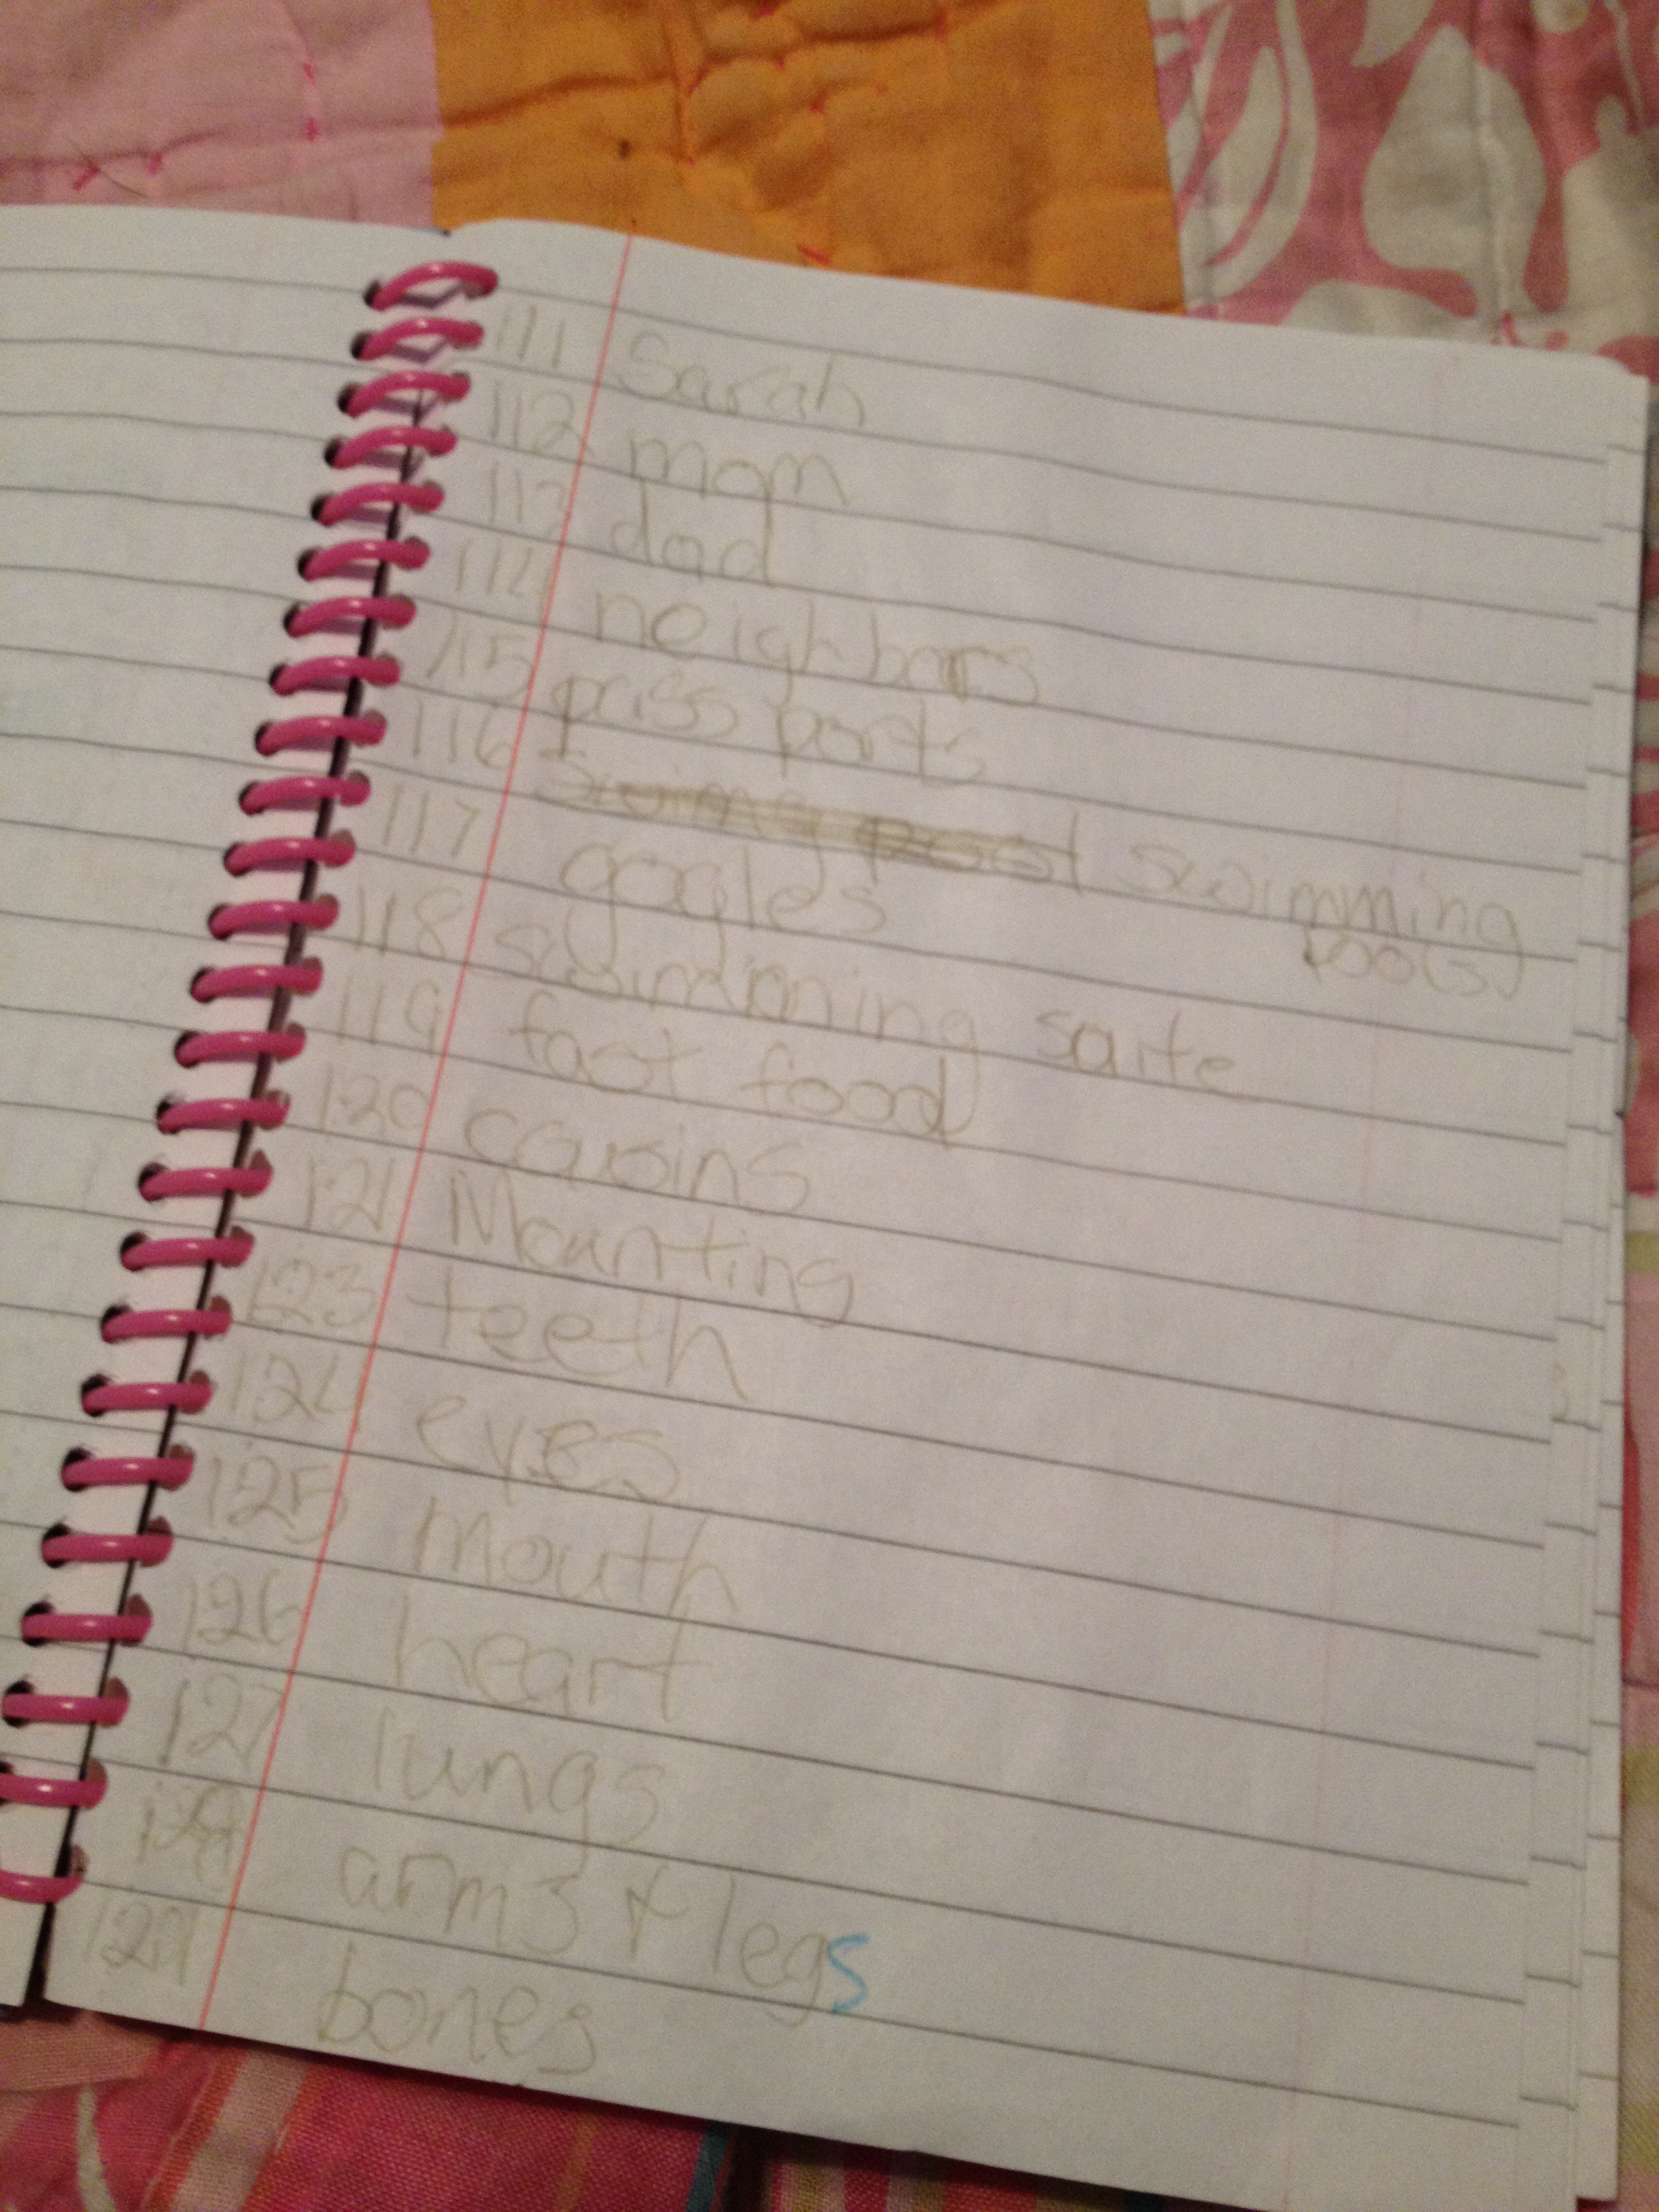 111 Sarah
112 mom
113 dad
114 neighbors
115 pass ports
116 swimming
pool(s)
117 gogles
118 swimming suite
119 fast food
120 cousins
121 Mounting
123 teeth
124 eyes
125 mouth
126 heart
127 lungs
128 arms + legs
129 bones